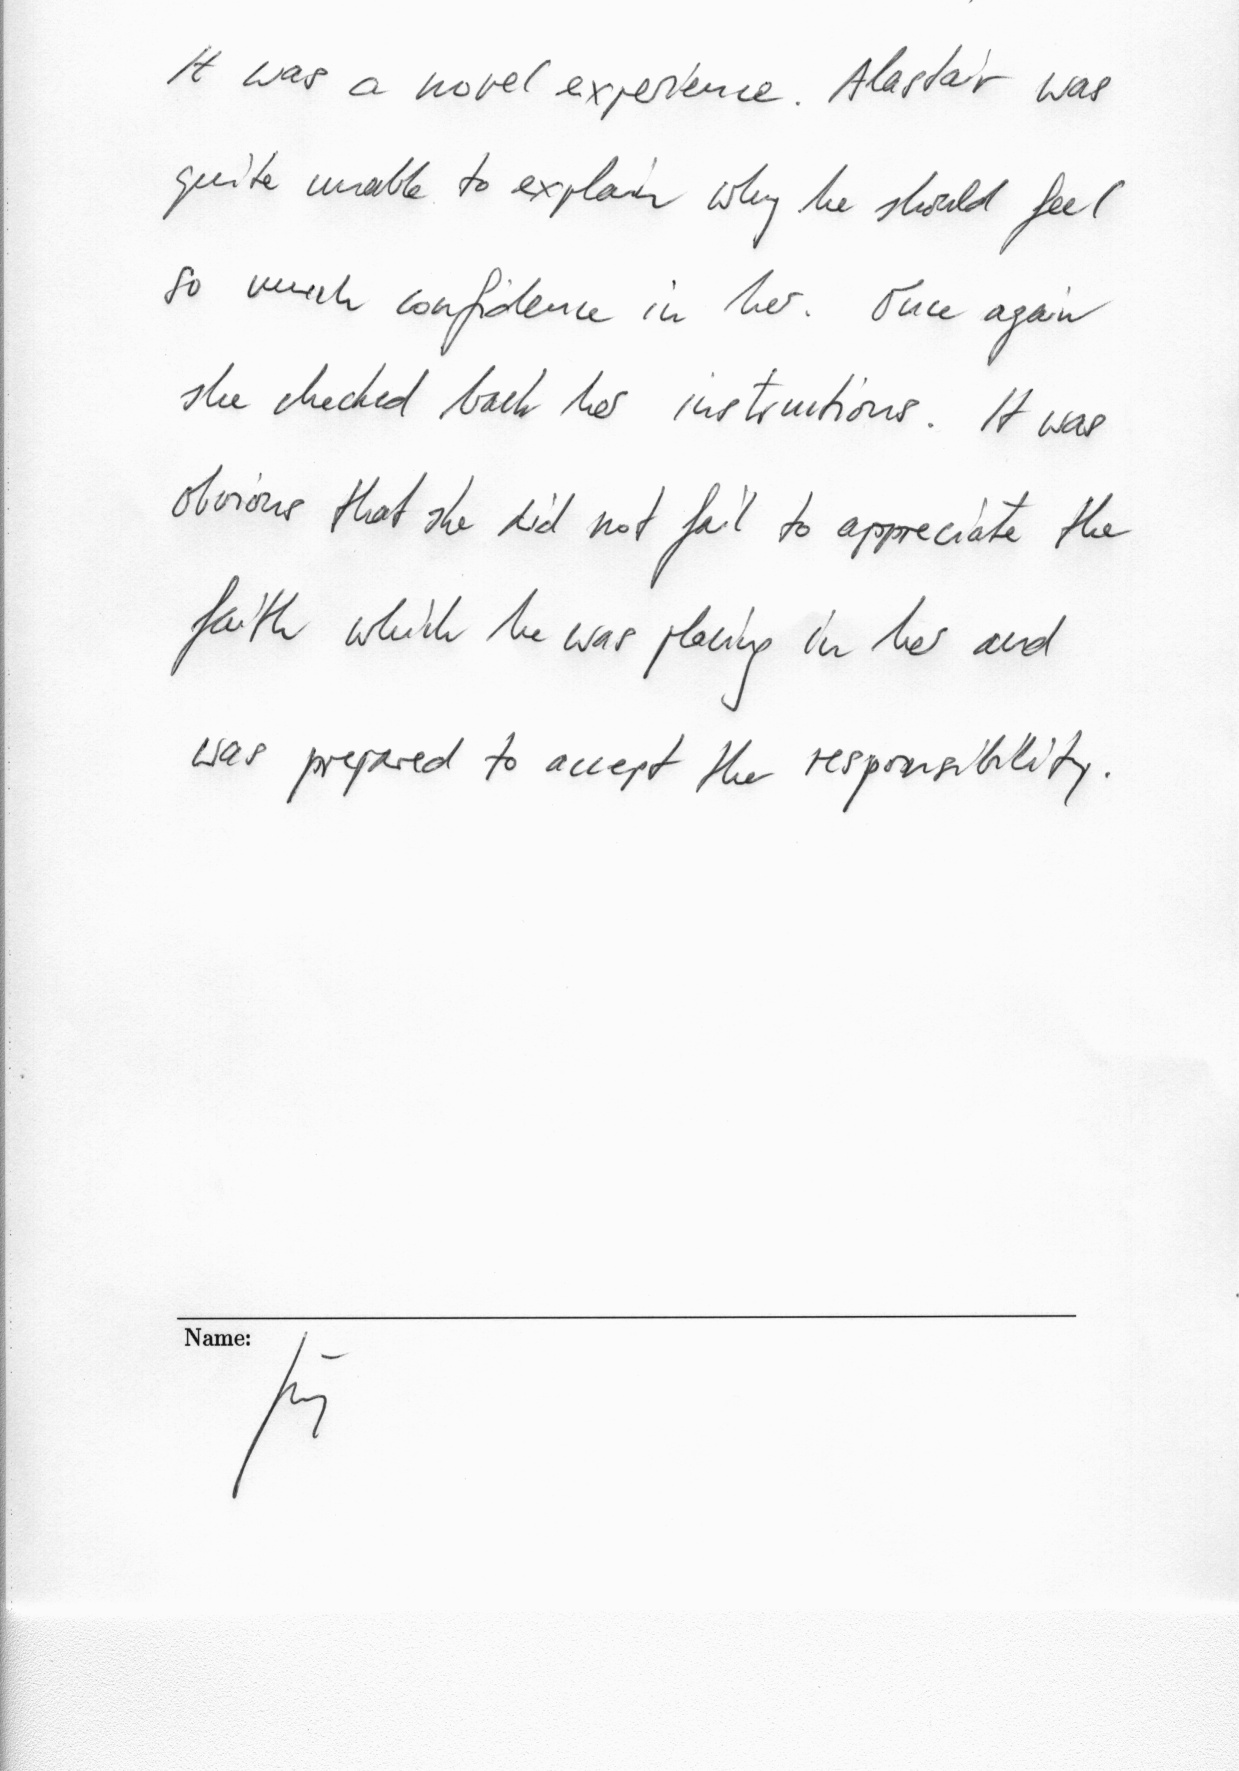 It was a novel experience. Alastair was
quite unable to explain why he should feel
so much confidence in her. Once again
she checked back her instructions. It was
obvious that she did not fail to appreciate the
faith which he was placing in her and
was prepared to accept the responsibility.
Name: